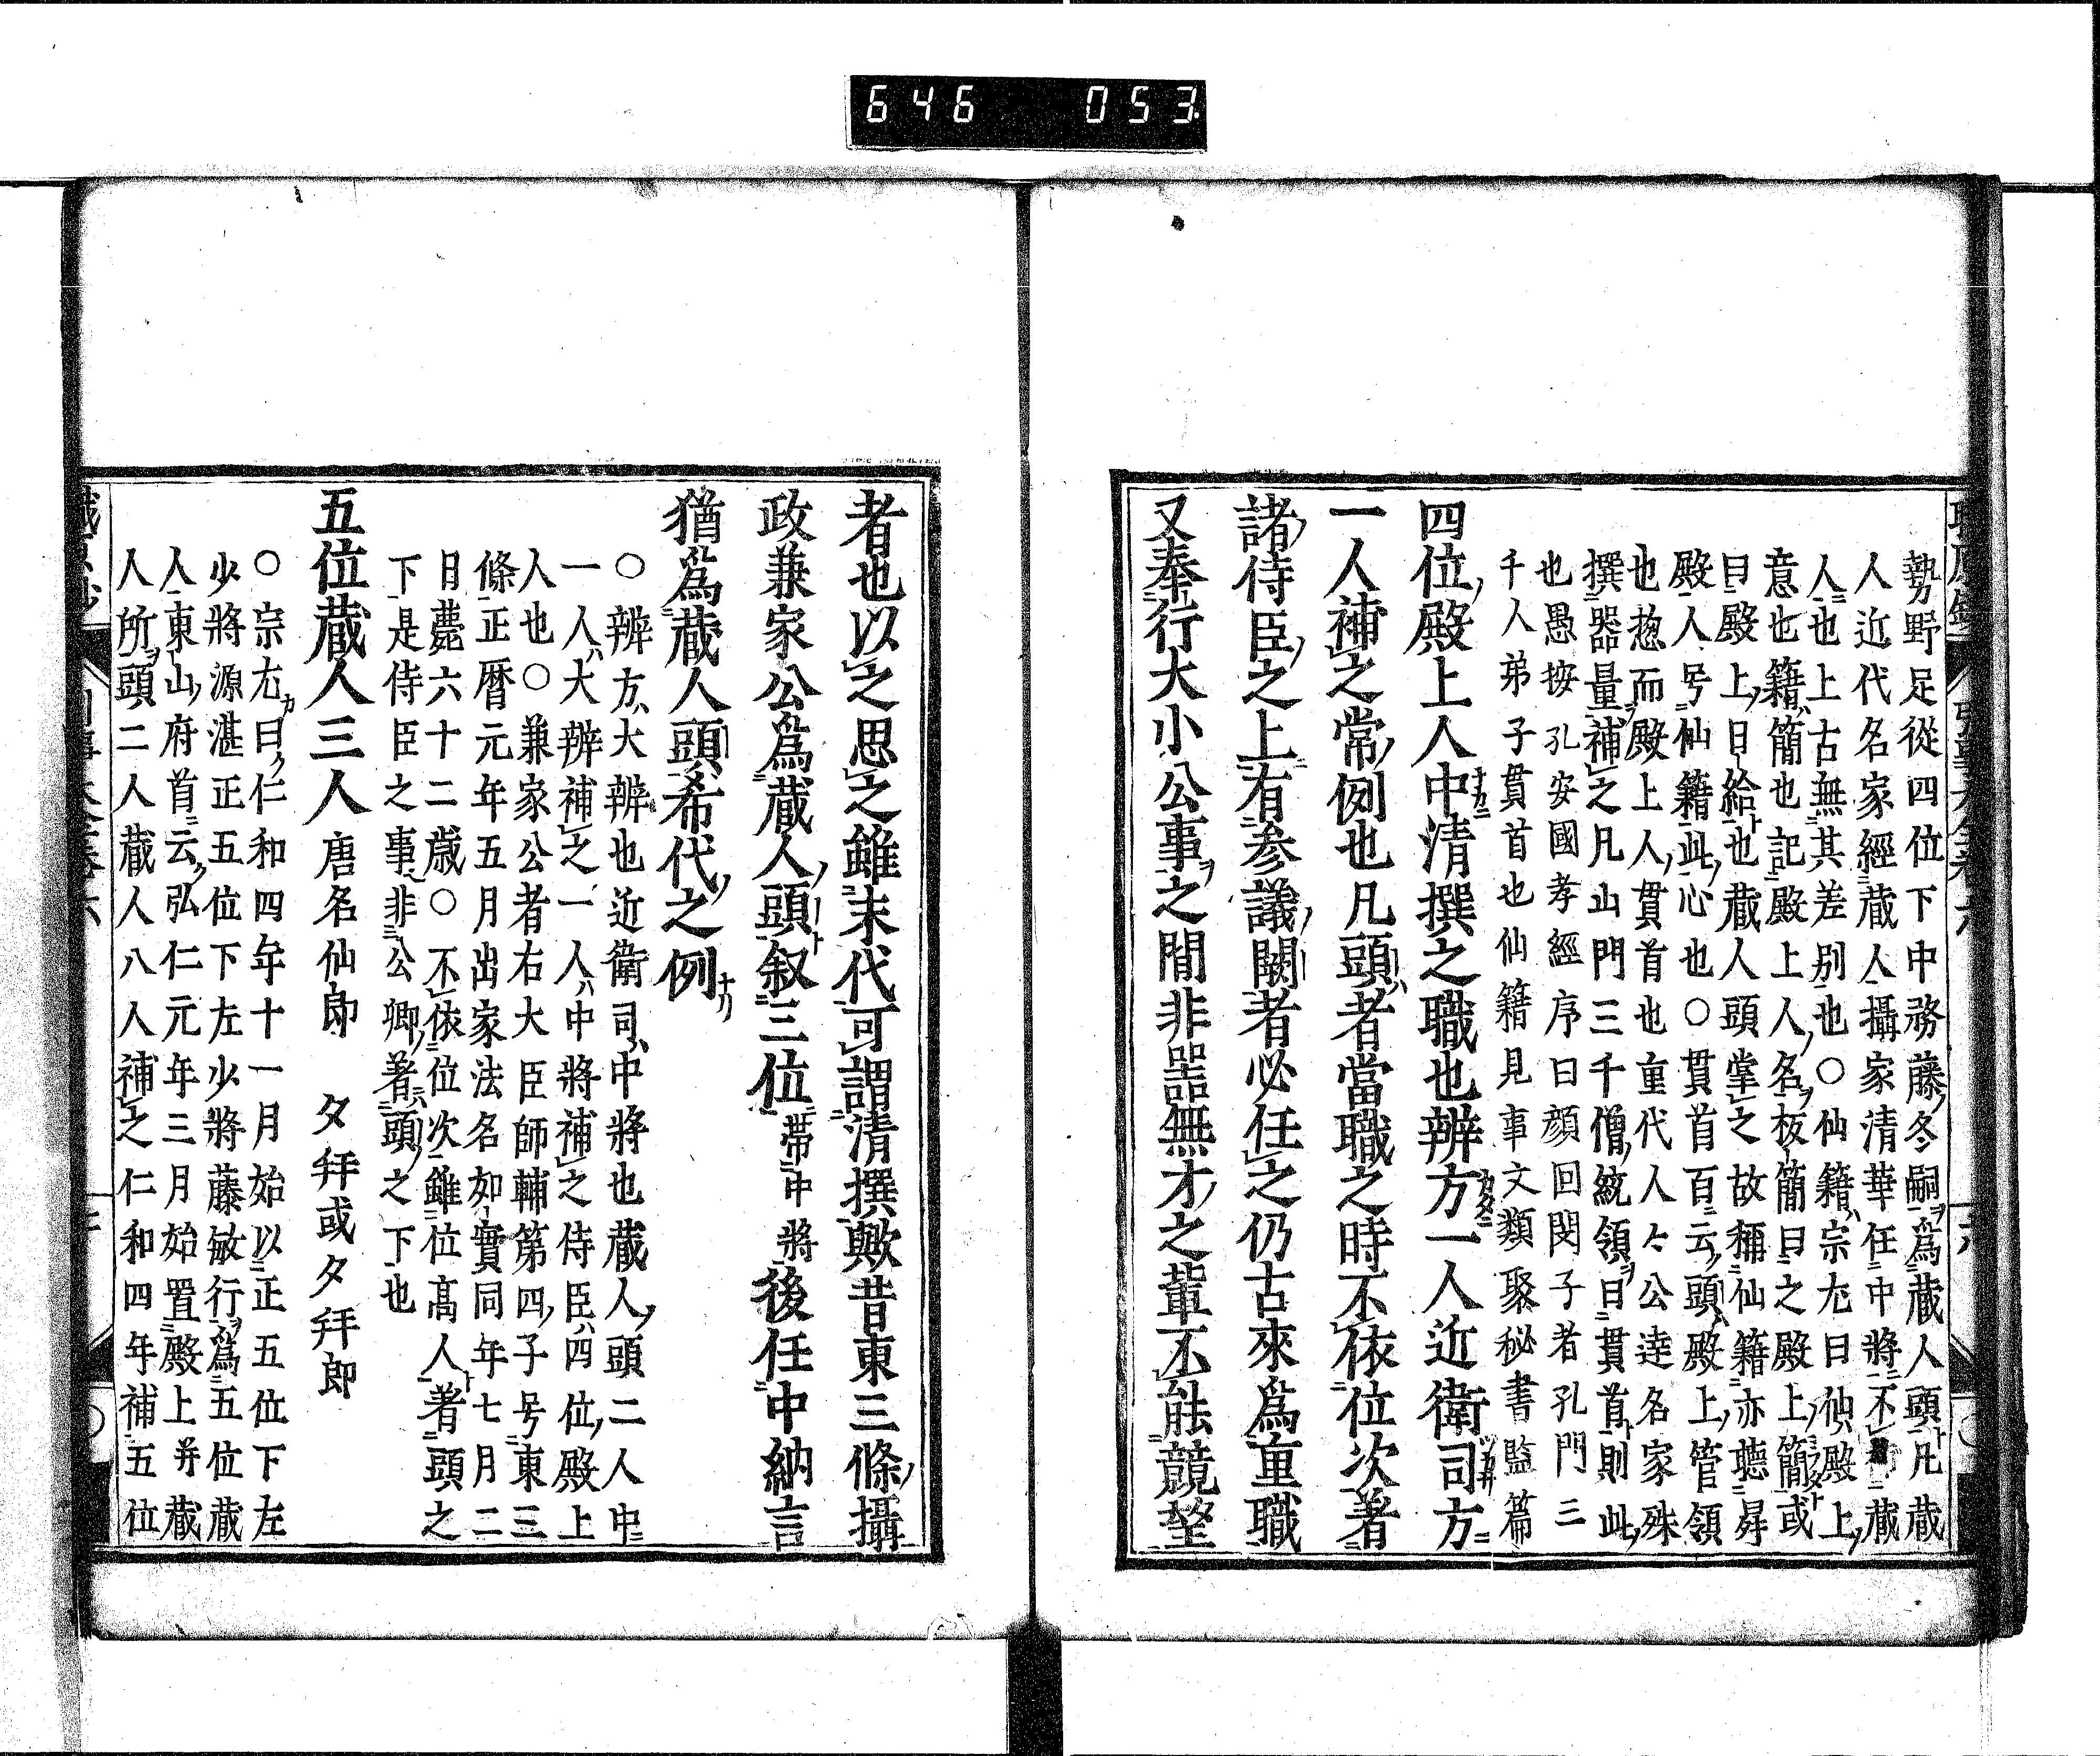 646 053
勢野足從四位下中務藤冬嗣爲蔵人頭凡蔵
人近代名家經蔵人攝家清華任中將不補蔵
人也上古無其差別也○仙籍宗尤曰仙殿上
意也籍簡也記殿上人名板簡曰之殿上簡或
曰殿上日給也蔵人頭掌之故稱仙籍亦聽昇
殿人号仙籍此心也○貫首百云頭殿上管領
也惣而殿上人貫首也重代人々公達名家殊
撰器量補之凡山門三千僧統領曰貫首則此
也愚按孔安國孝經序曰顔回閔子者孔門三
千人弟子貫首也仙籍見事文類聚秘書監篇
四位殿上人中清撰之職也辨方一人近衛司方
一人補之常例也凡頭者當職之時不依位次著
諸侍臣之上有参議闕者必任之仍古來爲重職
又奉行大小公事之間非器無才之輩不能競望
者也以之思之雖末代可謂清撰歟昔東三條攝
政兼家公爲蔵人頭叙三位帯中將後任中納言
猶爲蔵人頭希代之例
○辨方大辨也近衛司中將也蔵人頭二人中
一人大辨補之一人中將補之侍臣四位殿上
人也○兼家公者右大臣師輔第四子号東三
條正暦元年五月出家法名如實同年七月二
日薨六十二歳○不依位次雖位髙人著頭之
下是侍臣之事非公卿著頭之下也
五位蔵人三人唐名仙郎 夕拜或夕拜郎
○宗尤曰仁和四年十一月始以正五位下左
少將源湛正五位下左少將藤敏行爲五位蔵
人東山府首云弘仁元年三月始置殿上并蔵
人所頭二人蔵人八人補之仁和四年補五位